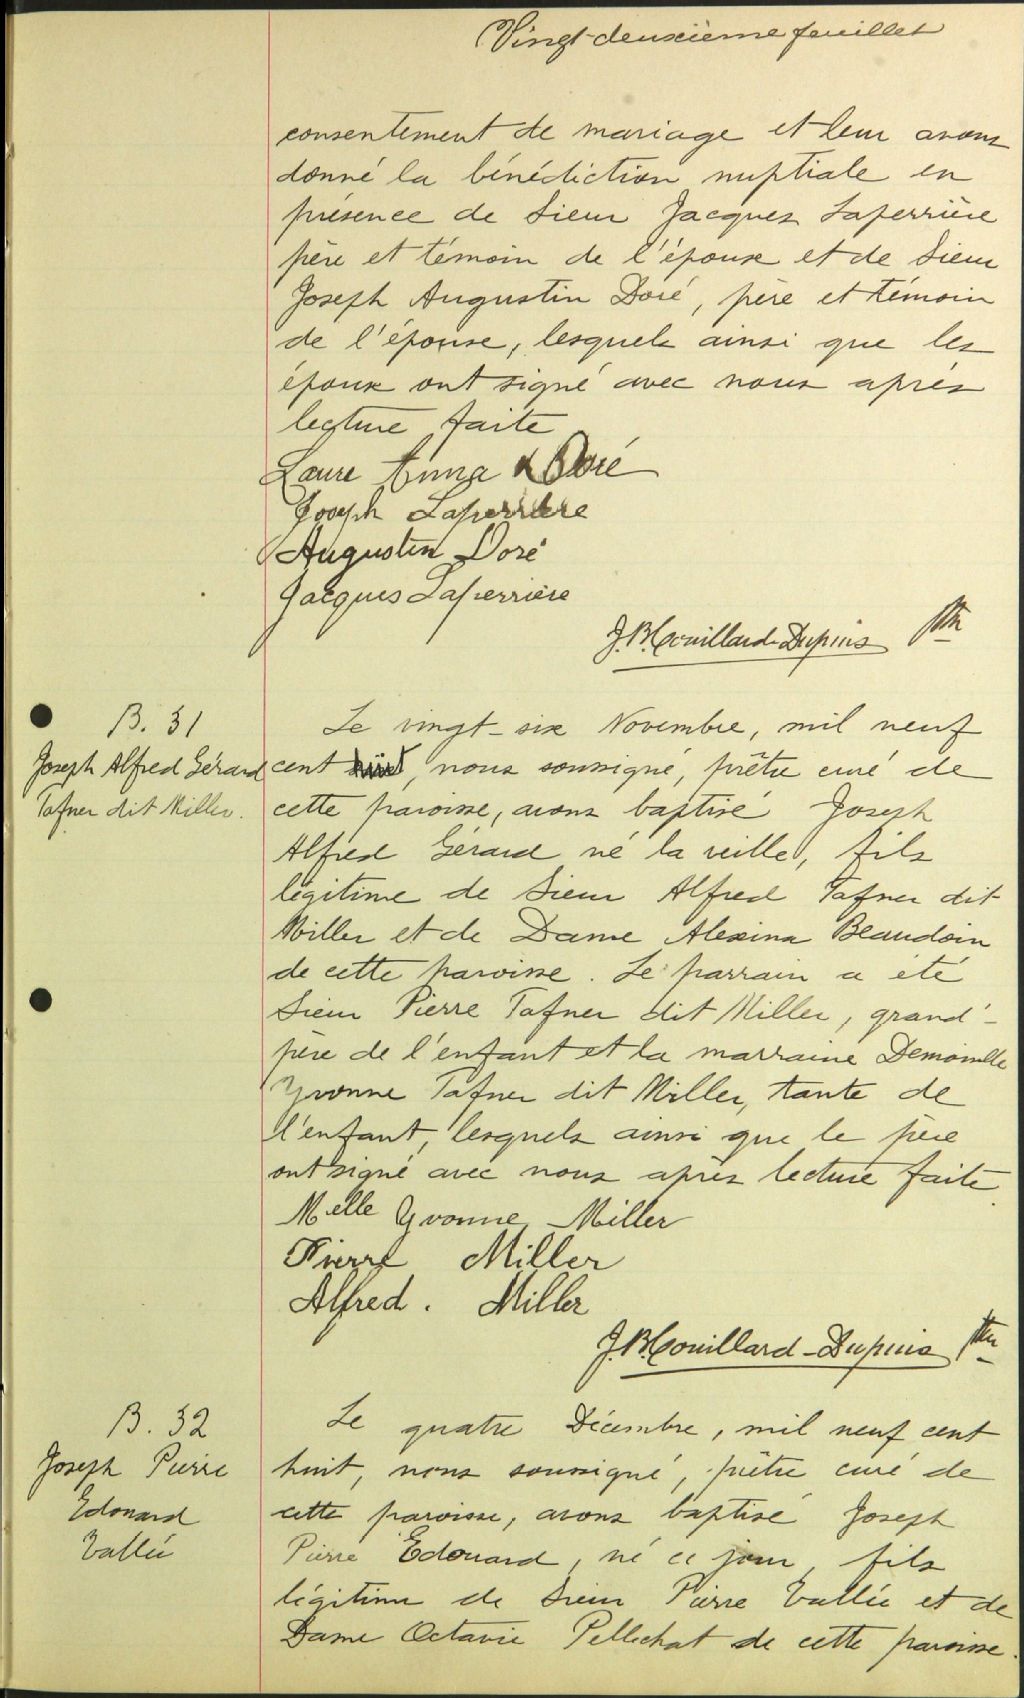 Vingt-deuxième feuillet
consentement de mariage et leur avons
donné la bénédiction nuptiale en
présence de Sieur Jacques Laperrière
père et témoin de l'époux et de Sieur
Joseph Augustin Doré, père et témoin
de l'épouse, lesquels ainsi que les
époux ont signé avec nous après
lecture faite
Laure Anna Doré
Joseph Laperrière
Augustin Doré
Jacques Laperrière
J.B. Couillard-Dupuis Ptre
B. 31
Joseph Alfred Gérard
Tafner dit Miller.
Le vingt-six Novembre, mil neuf
cent huit, nous soussigné, prêtre curé de
cette paroisse, avons baptisé Joseph
Alfred Gérard né la veille, fils
légitime de Sieur Alfred Tafner dit
Miller et de Dame Alexina Beaudoin
de cette paroisse. Le parrain a été
Sieur Pierre Tafner dit Miller, grand'-
père de l'enfant et la marraine Demoiselle
Yvonne Tafner dit Miller, tante de
l'enfant, lesquels ainsi que le père
ont signé avec nous après lecture faite.
Melle Yvonne Miller
Pierre Miller
Alfred. Miller
J.B. Couillard-Dupuis Ptre
B. 32
Joseph Pierre
Edouard
Vallée
Le quatre Décembre, mil neuf cent
huit, nous soussigné, prêtre curé de
cette paroisse, avons baptisé Joseph
Pierre Edouard, né ce jour, fils
légitime de Sieur Pierre Vallée et de
Dame Octavie Pellechat de cette paroisse.